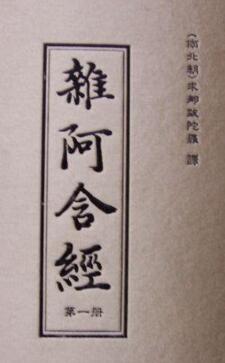 (南北朝)求那跋陀羅 譯
雜阿含經
第一册